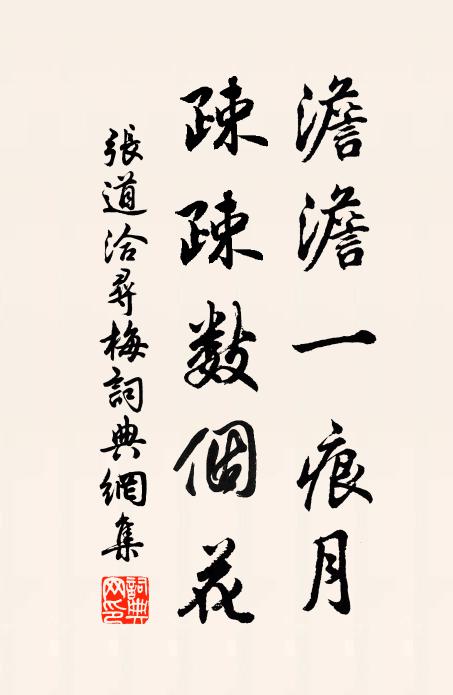 澹澹一痕月
疎疎數個花
張道洽尋梅詞典網集
詞典网印